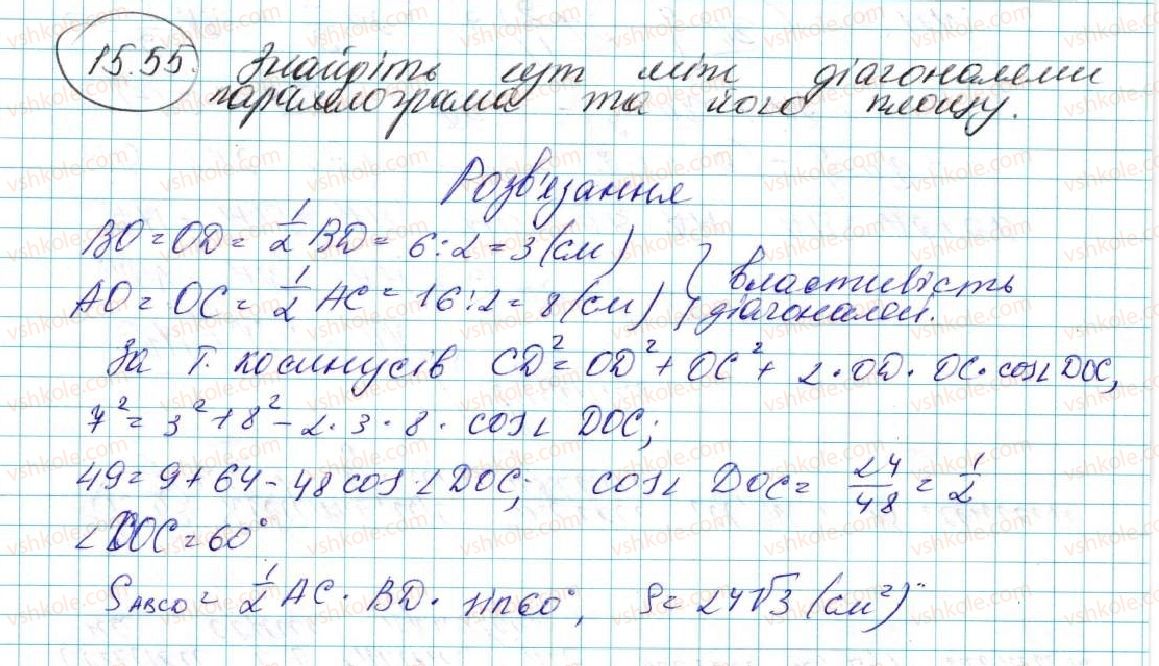 15.55. Знайдіть кут між діагоналями
паралелограма та його площу.
Розв'язання
BO = OD = 1/2 BD = 6 : 2 = 3 (см)
AO = OC = 1/2 AC = 16 : 2 = 8 (см) } властивість діагоналей.
За т. косинусів CD² = OD² + OC² + 2 · OD · OC · cos∠DOC,
7² = 3² + 8² - 2 · 3 · 8 · cos∠DOC;
49 = 9 + 64 - 48 cos∠DOC; cos∠DOC = 24/48 = 1/2
∠DOC = 60°
S ABCD = 1/2 AC · BD · sin60°, S = 24√3 (см²)